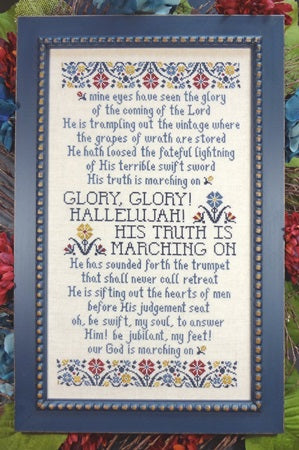 mine eyes have seen the glory
of the coming of the Lord
He is trampling out the vintage where
the grapes of wrath are stored
He hath loosed the fateful lightning
of His terrible swift sword
His truth is marching on
GLORY, GLORY!
HALLELUJAH!
HIS TRUTH IS
MARCHING ON
He has sounded forth the trumpet
that shall never call retreat
He is sifting out the hearts of men
before His judgement seat
oh, be swift, my soul, to answer
Him! be jubilant, my feet!
our God is marching on